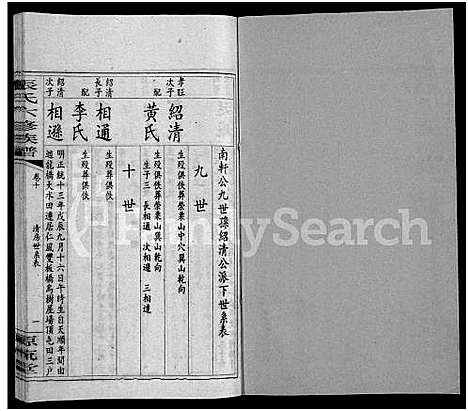 南軒公九世孫紹清公派下世系表
九世
孝
次子
紹清
生殁俱佚葬榮栗山中穴巽山乾向
配
黃氏
生殁俱佚葬榮栗山巽山乾向
生子三 長相通 次相遜 三相達
十世
紹清
長子
相通
生殁葬俱佚
配
李氏
生殁葬俱佚
紹清
次子
相遜
明正統十三年戊辰九月十六日午時生自天順年間由
遊龍橋天水田遷居仁風雙板橋萬樹屋場頂色田三户
張氏六修族譜
卷十
清房世系表
一
FamilySearch